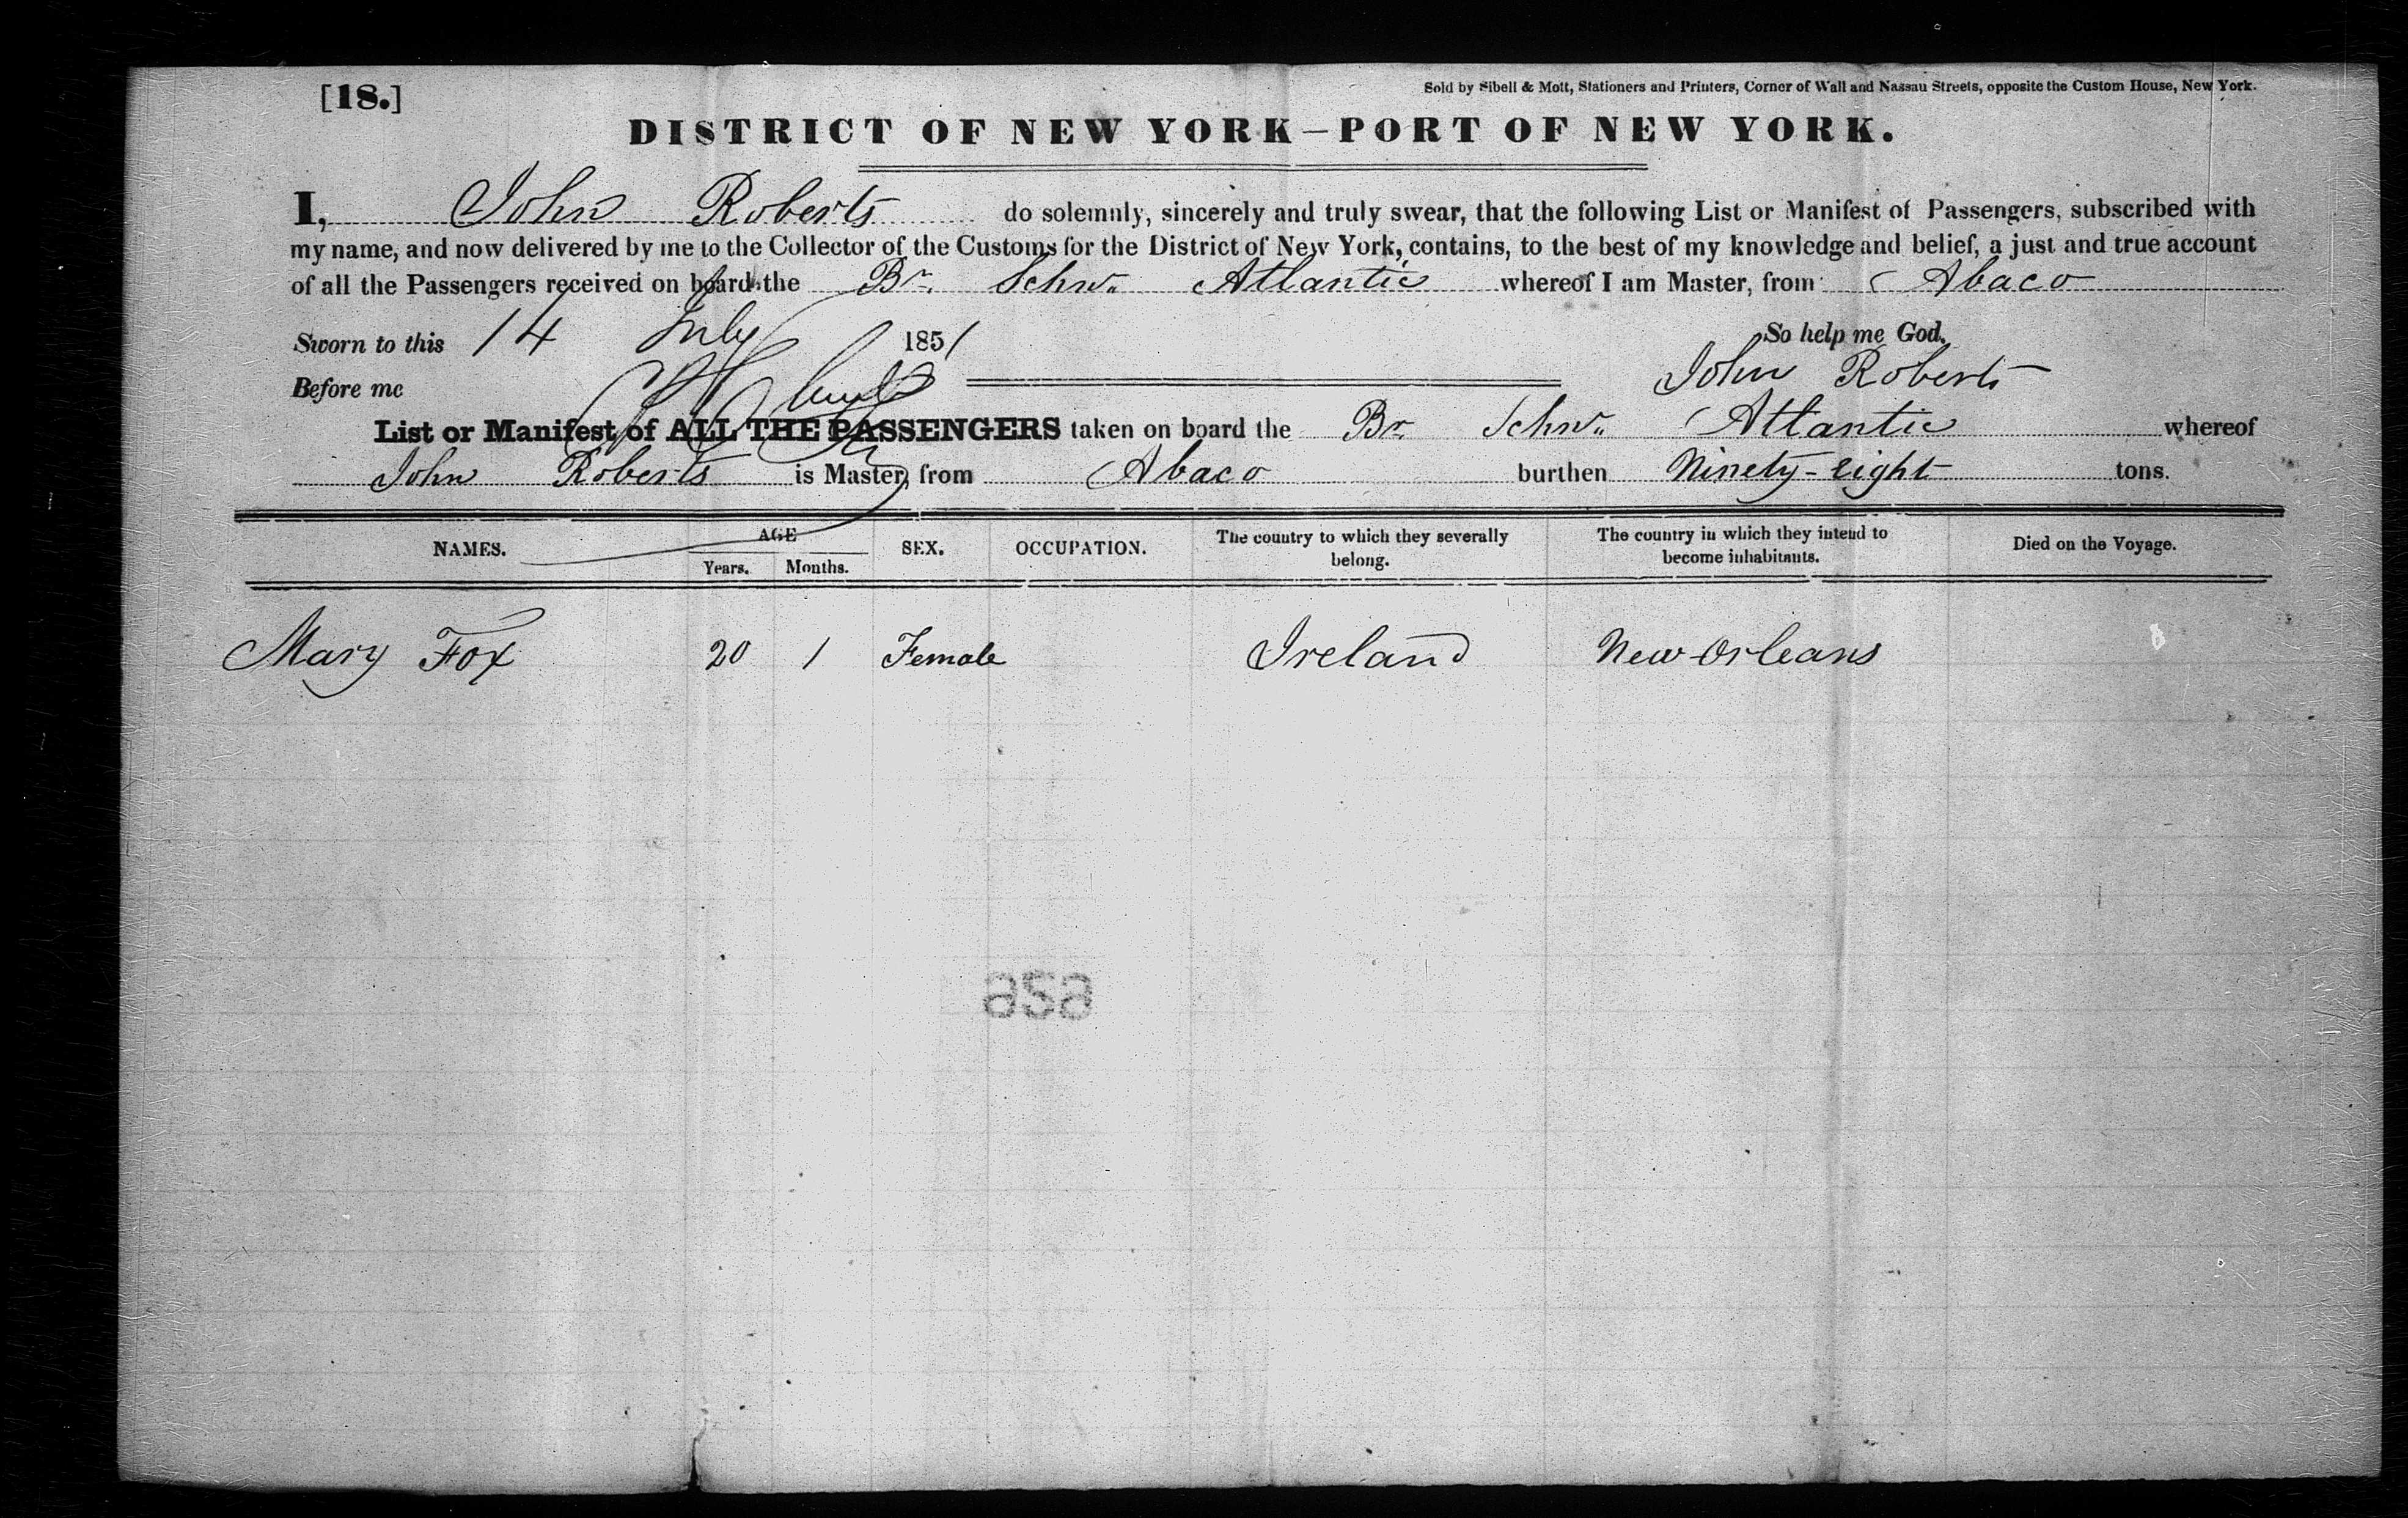 [18.]
Sold by Sibell & Mott, Stationers and Printers, Corner of Wall and Nassau Streets, opposite the Custom House, New York.
DISTRICT OF NEW YORK—PORT OF NEW YORK.
I, John Roberts do solemnly, sincerely and truly swear, that the following List or Manifest of Passengers, subscribed with
my name, and now delivered by me to the Collector of the Customs for the District of New York, contains, to the best of my knowledge and belief, a just and true account
of all the Passengers received on board the Br. Schr. Atlantic whereof I am Master, from Abaco
Sworn to this 14 July 1851 So help me God.
Before me John Roberts
List or Manifest of ALL THE PASSENGERS taken on board the Br. Schr. Atlantic whereof
John Roberts is Master, from Abaco burthen Ninety-eight tons.
NAMES. AGE SEX. OCCUPATION. The country to which they severally belong. The country in which they intend to become inhabitants. Died on the Voyage.
Years. Months.
Mary Fox 20 1 Female Ireland New Orleans